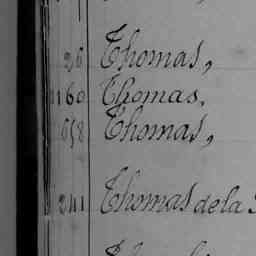 26 Thomas,
1160 Thomas,
658 Thomas,
241 Thomas de la